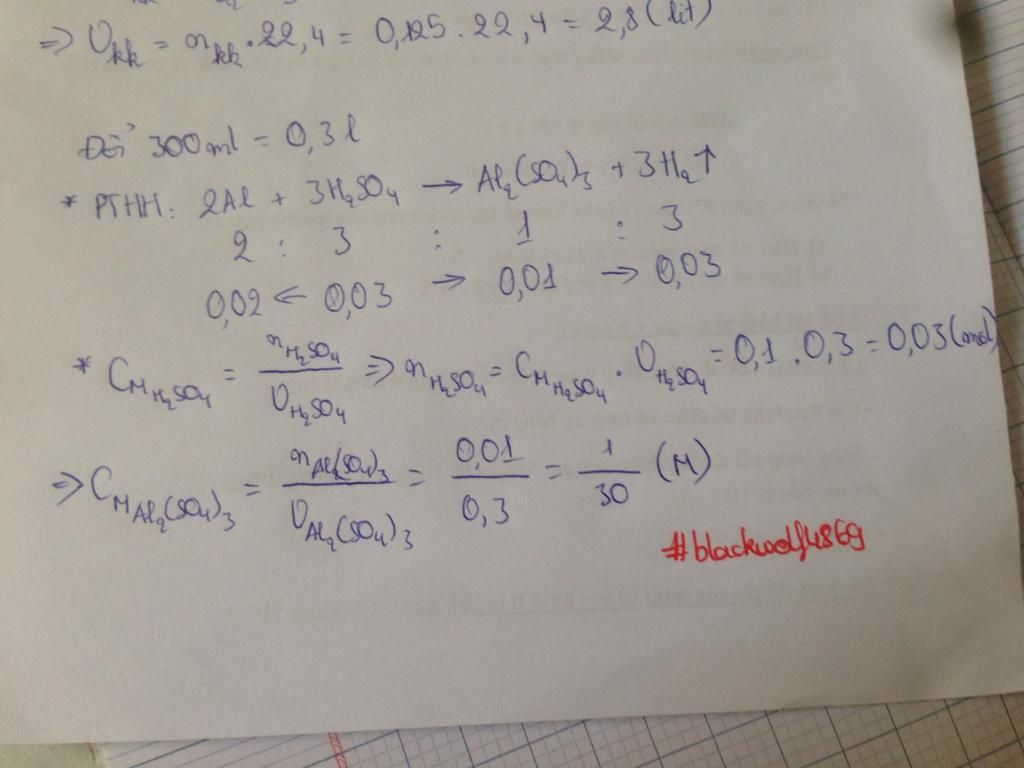 => Vkk = nkk . 22,4 = 0,125 . 22,4 = 2,8 (lít)
Đổi 300ml = 0,3l
* PTHH: 2Al + 3H₂SO₄ → Al₂(SO₄)₃ + 3H₂↑
2 : 3 : 1 : 3
0,02 ← 0,03 → 0,01 → 0,03
* CM H₂SO₄ = nH₂SO₄ / VH₂SO₄ => nH₂SO₄ = CM H₂SO₄ . VH₂SO₄ = 0,1 . 0,3 = 0,03 (mol)
=> CM Al₂(SO₄)₃ = nAl(SO₄)₃ / VAl₂(SO₄)₃ = 0,01 / 0,3 = 1 / 30 (M)
#blackwolf4869